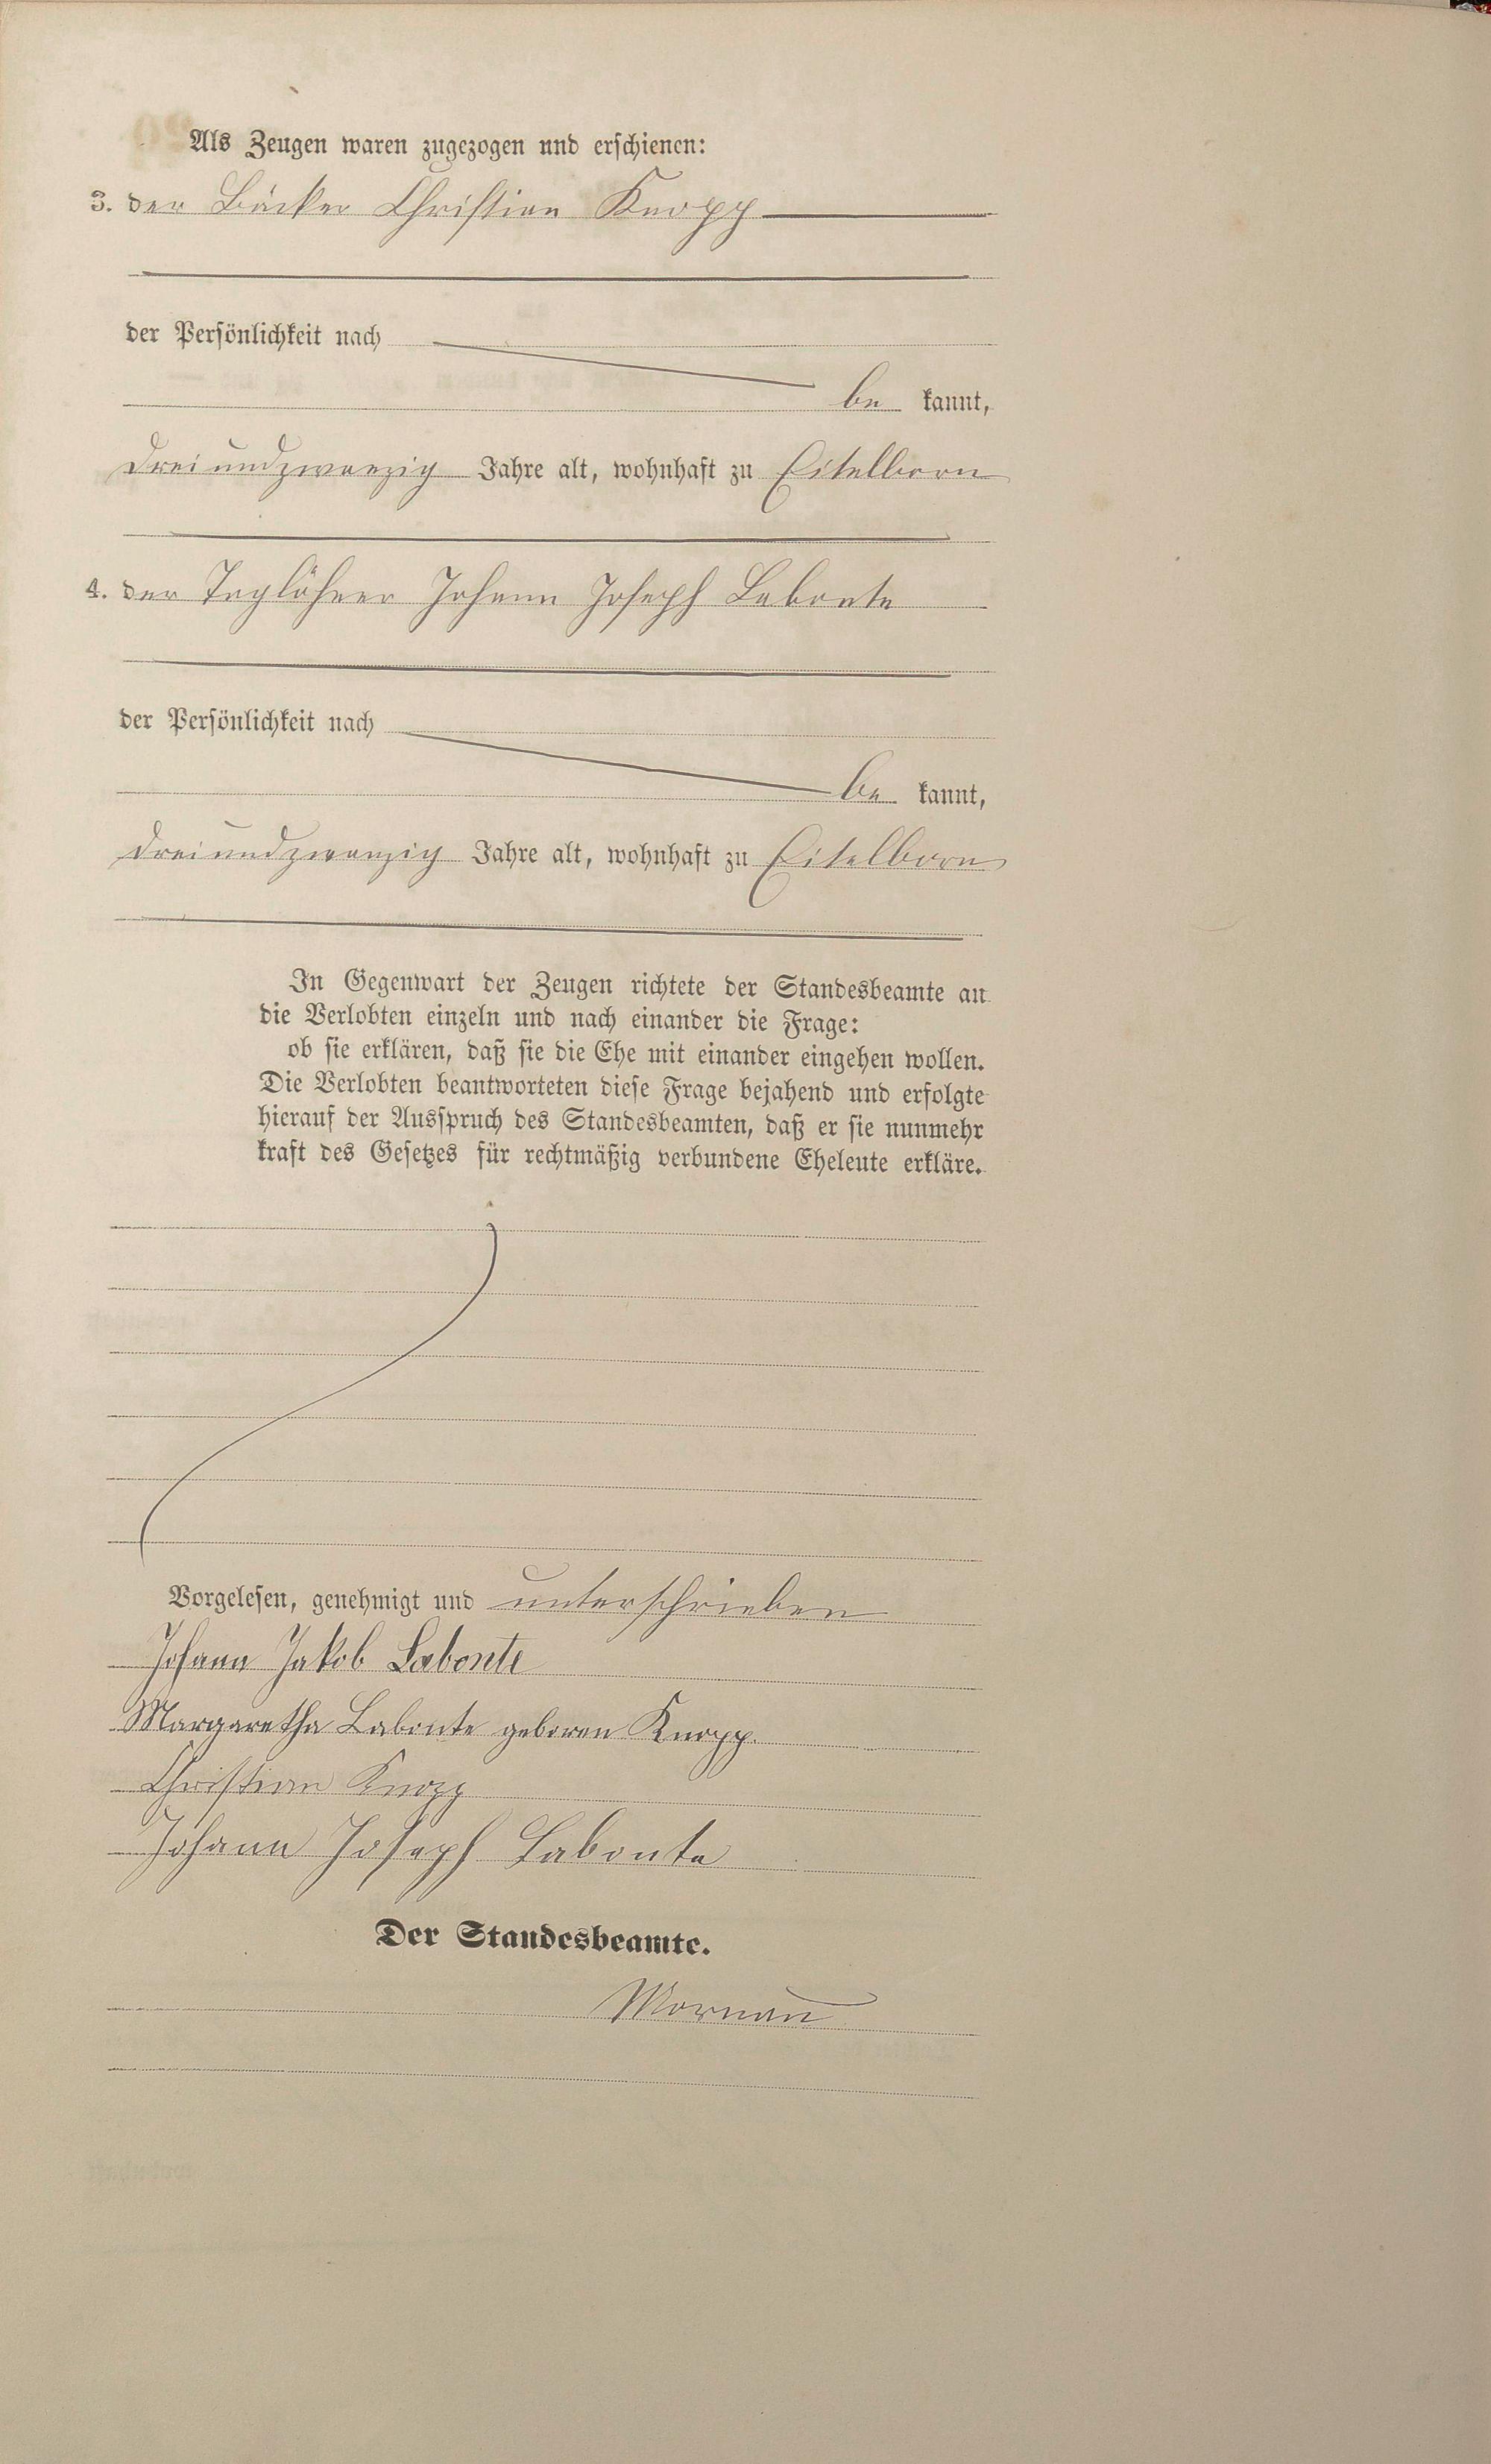 Als Zeugen waren zugezogen und erschienen:
3. der Bäcker Christian Knopp
der Persönlichkeit nach
be kannt,
dreiundzwanzig Jahre alt, wohnhaft zu Eitelborn
4. der Taglöhner Johann Joseph Labonte
der Persönlichkeit nach
be kannt,
dreiundzwanzig Jahre alt, wohnhaft zu Eitelborn
In Gegenwart der Zeugen richtete der Standesbeamte an
die Verlobten einzeln und nach einander die Frage:
ob sie erklären, daß sie die Ehe mit einander eingehen wollen.
Die Verlobten beantworteten diese Frage bejahend und erfolgte
hierauf der Ausspruch des Standesbeamten, daß er sie nunmehr
kraft des Gesetzes für rechtmäßig verbundene Eheleute erkläre.
Vorgelesen, genehmigt und unterschrieben
Johann Jakob Labonte
Margaretha Labonte geboren Knopp.
Christian Knopp
Johann Joseph Labonte
Der Standesbeamte.
Mornau